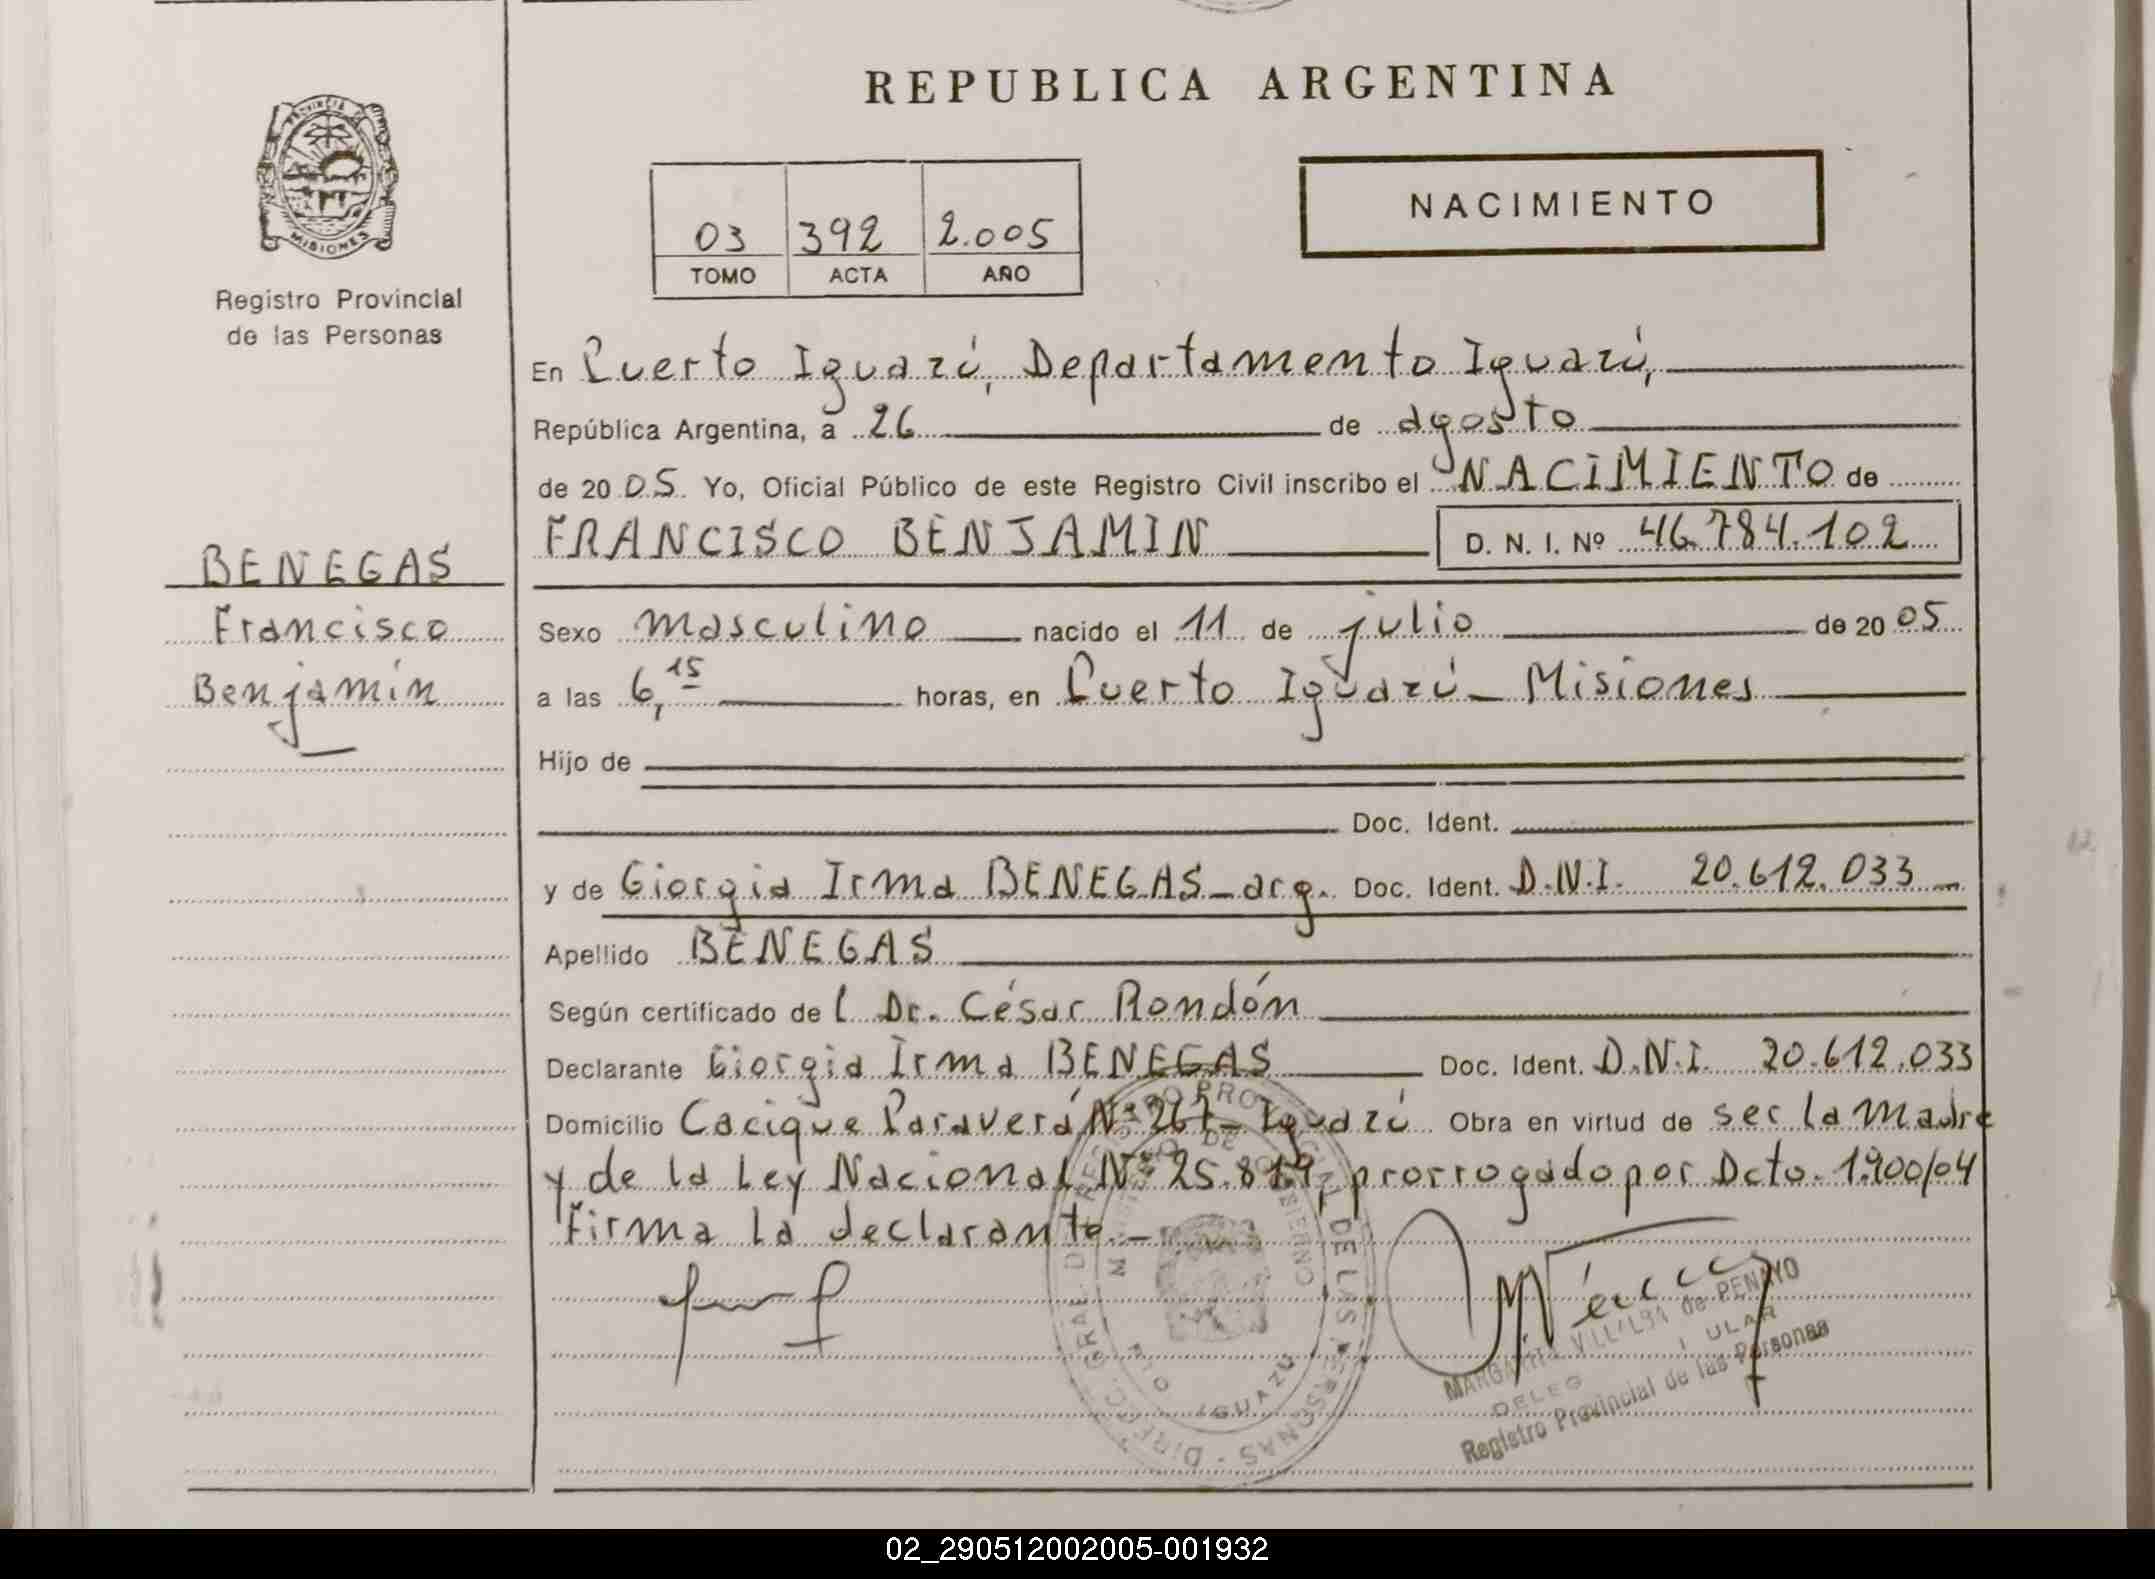 REPUBLICA ARGENTINA
PROVINCIA DE MISIONES
Registro Provincial
de las Personas
03 392 2.005
TOMO ACTA AÑO
NACIMIENTO
En Puerto Iguazú, Departamento Iguazú,
República Argentina, a 26 de agosto
de 2005. Yo, Oficial Público de este Registro Civil inscribo el NACIMIENTO de
FRANCISCO BENJAMIN D. N. I. Nº 46.784.102
BENEGAS
Francisco
Benjamín
Sexo masculino nacido el 11 de julio de 2005
a las 6,15 horas, en Puerto Iguazú - Misiones
Hijo de
Doc. Ident.
y de Giorgia Irma BENEGAS - arg. Doc. Ident. D.N.I. 20.612.033
Apellido BENEGAS
Según certificado del Dr. César Rondón
Declarante Giorgia Irma BENEGAS Doc. Ident. D.N.I. 20.612.033
Domicilio Cacique Paraverá Nº 267 - Iguazú Obra en virtud de ser la madre
y de la Ley Nacional Nº 25.819, prorrogado por Dcto. 1.900/04
Firma la declarante. -
DIREC. GRAL. DE REGISTRO PROVINCIAL DE LAS PERSONAS
MINISTERIO DE GOBIERNO
IGUAZU
MARGARITA VILLALBA de PENAYO
Registro Provincial de las Personas
02_290512002005-001932